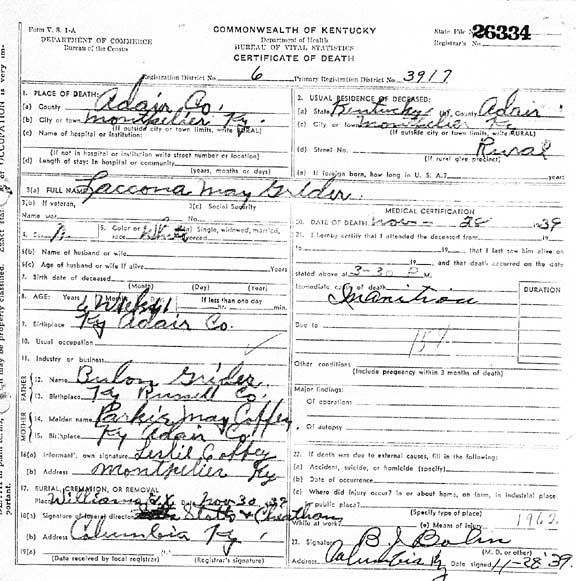 Form V. S. 1-A
DEPARTMENT OF COMMERCE
Bureau of the Census
COMMONWEALTH OF KENTUCKY
Department of Health
BUREAU OF VITAL STATISTICS
CERTIFICATE OF DEATH
State File No. 26334
Registrar's No.
Registration District No. 6 Primary Registration District No. 3917
1. PLACE OF DEATH:
(a) County Adair Co.
(b) City or town Montpelier Ky.
(If outside city or town limits, write RURAL)
(c) Name of hospital or institution:
(If not in hospital or institution write street number or location)
(d) Length of stay: In hospital or community
(years, months or days)
2. USUAL RESIDENCE OF DECEASED:
(a) State Kentucky (b) County Adair
(c) City or town Montpelier Ky
(If outside city or town limits, write RURAL)
(d) Street No. Rural
(If rural give precinct)
(e) If foreign born, how long in U. S. A.? years
3(a) FULL NAME Laccona May Grider
3(b) If veteran, 3(c) Social Security
Name war No.
5. Color or White (a) Single, widowed, married,
race divorced
6(b) Name of husband or wife
6(c) Age of husband or wife if alive Years
7. Birth date of deceased
(Month) (Day) (Year)
8. AGE: Years Months Days If less than one day
Weeks hr. min.
9. Birthplace Ky Adair Co.
10. Usual occupation
11. Industry or business
FATHER
12. Name Bulon Grider
13. Birthplace Ky Russell Co.
MOTHER
14. Maiden name May Coffey
15. Birthplace Ky Adair Co.
16(a) Informant's own signature Leslie Coffey
(b) Address Montpelier Ky
17. BURIAL, CREMATION, OR REMOVAL
Place Williams Date Nov 30, 39
18(a) Signature of funeral director Stotts & Cheatham
(b) Address Columbia Ky.
19(a)
(Date received by local registrar) (Registrar's signature)
MEDICAL CERTIFICATION
20. DATE OF DEATH Nov - 28 1939
21. I hereby certify that I attended the deceased from 19
19 , that I last saw him alive on
19 , and that death occurred on the date
stated above at 3-30 P M.
Immediate cause of death DURATION
Inanition
Due to
Other conditions
(Include pregnancy within 3 months of death)
Major findings:
Of operations
Of autopsy
22. If death was due to external causes, fill in the following:
(a) Accident, suicide, or homicide (specify)
(b) Date of occurrence
(c) Where did injury occur? In or about home, on farm, in industrial place
public place?
(Specify type of place)
While at work? (e) Means of injury
23. Signature B. J. Bolin
(M. D. or other)
Address Columbia Ky Date signed 11-28 '39